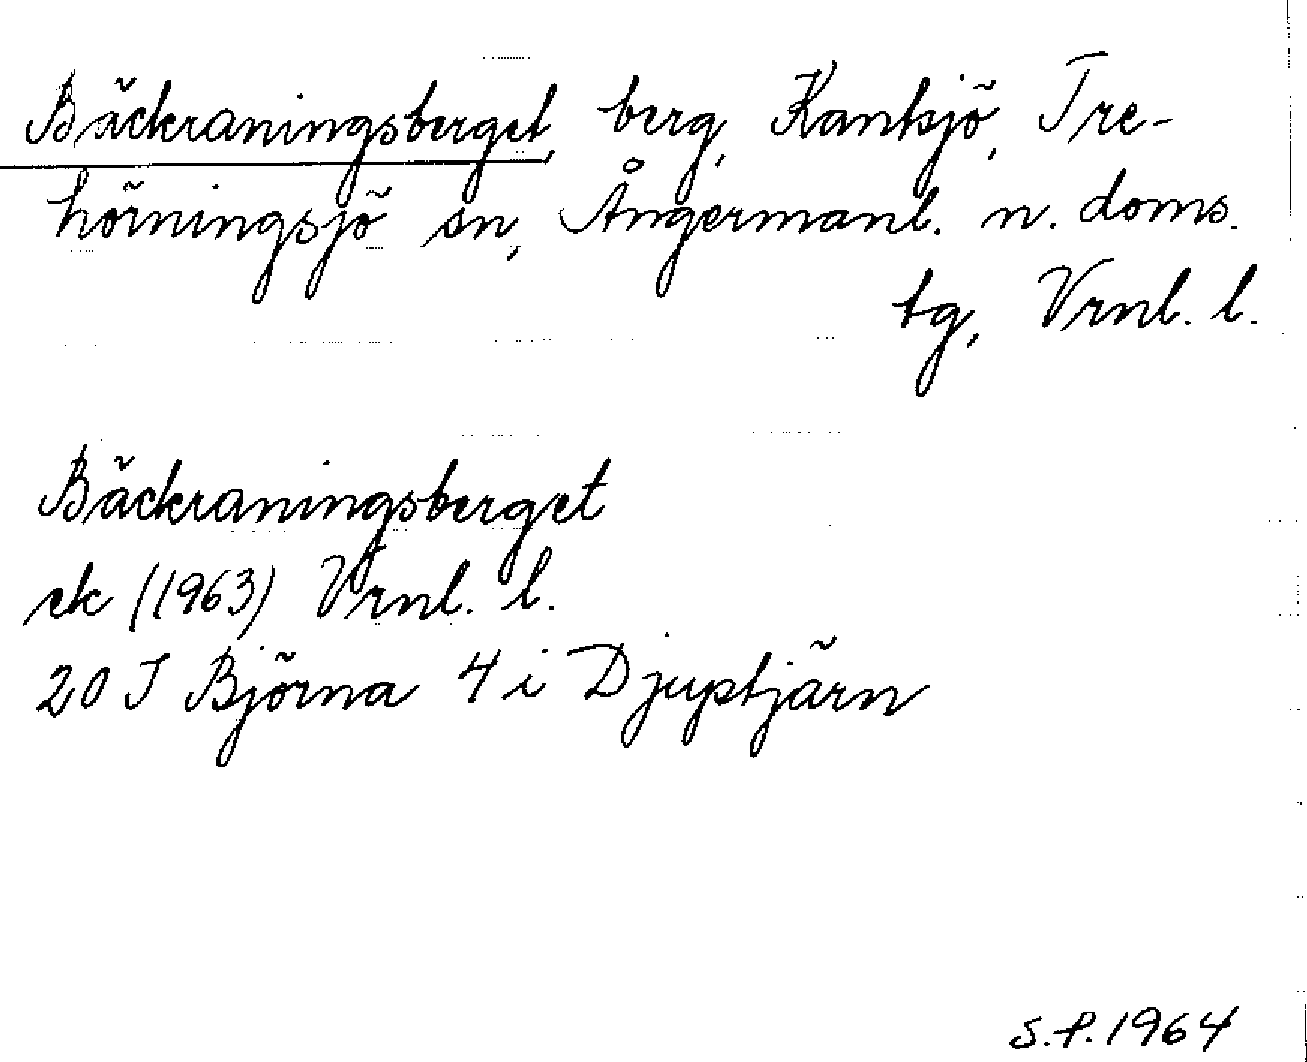 Bäckraningsberget, berg, Kantsjö, Tre-
hörningsjö sn, Ångermanl. n. doms.
tg, Vrnl. l.
Bäckraningsberget
ek (1963) Vrnl. l.
20 J Björna 4 i Djuptjärn
S.P. 1964